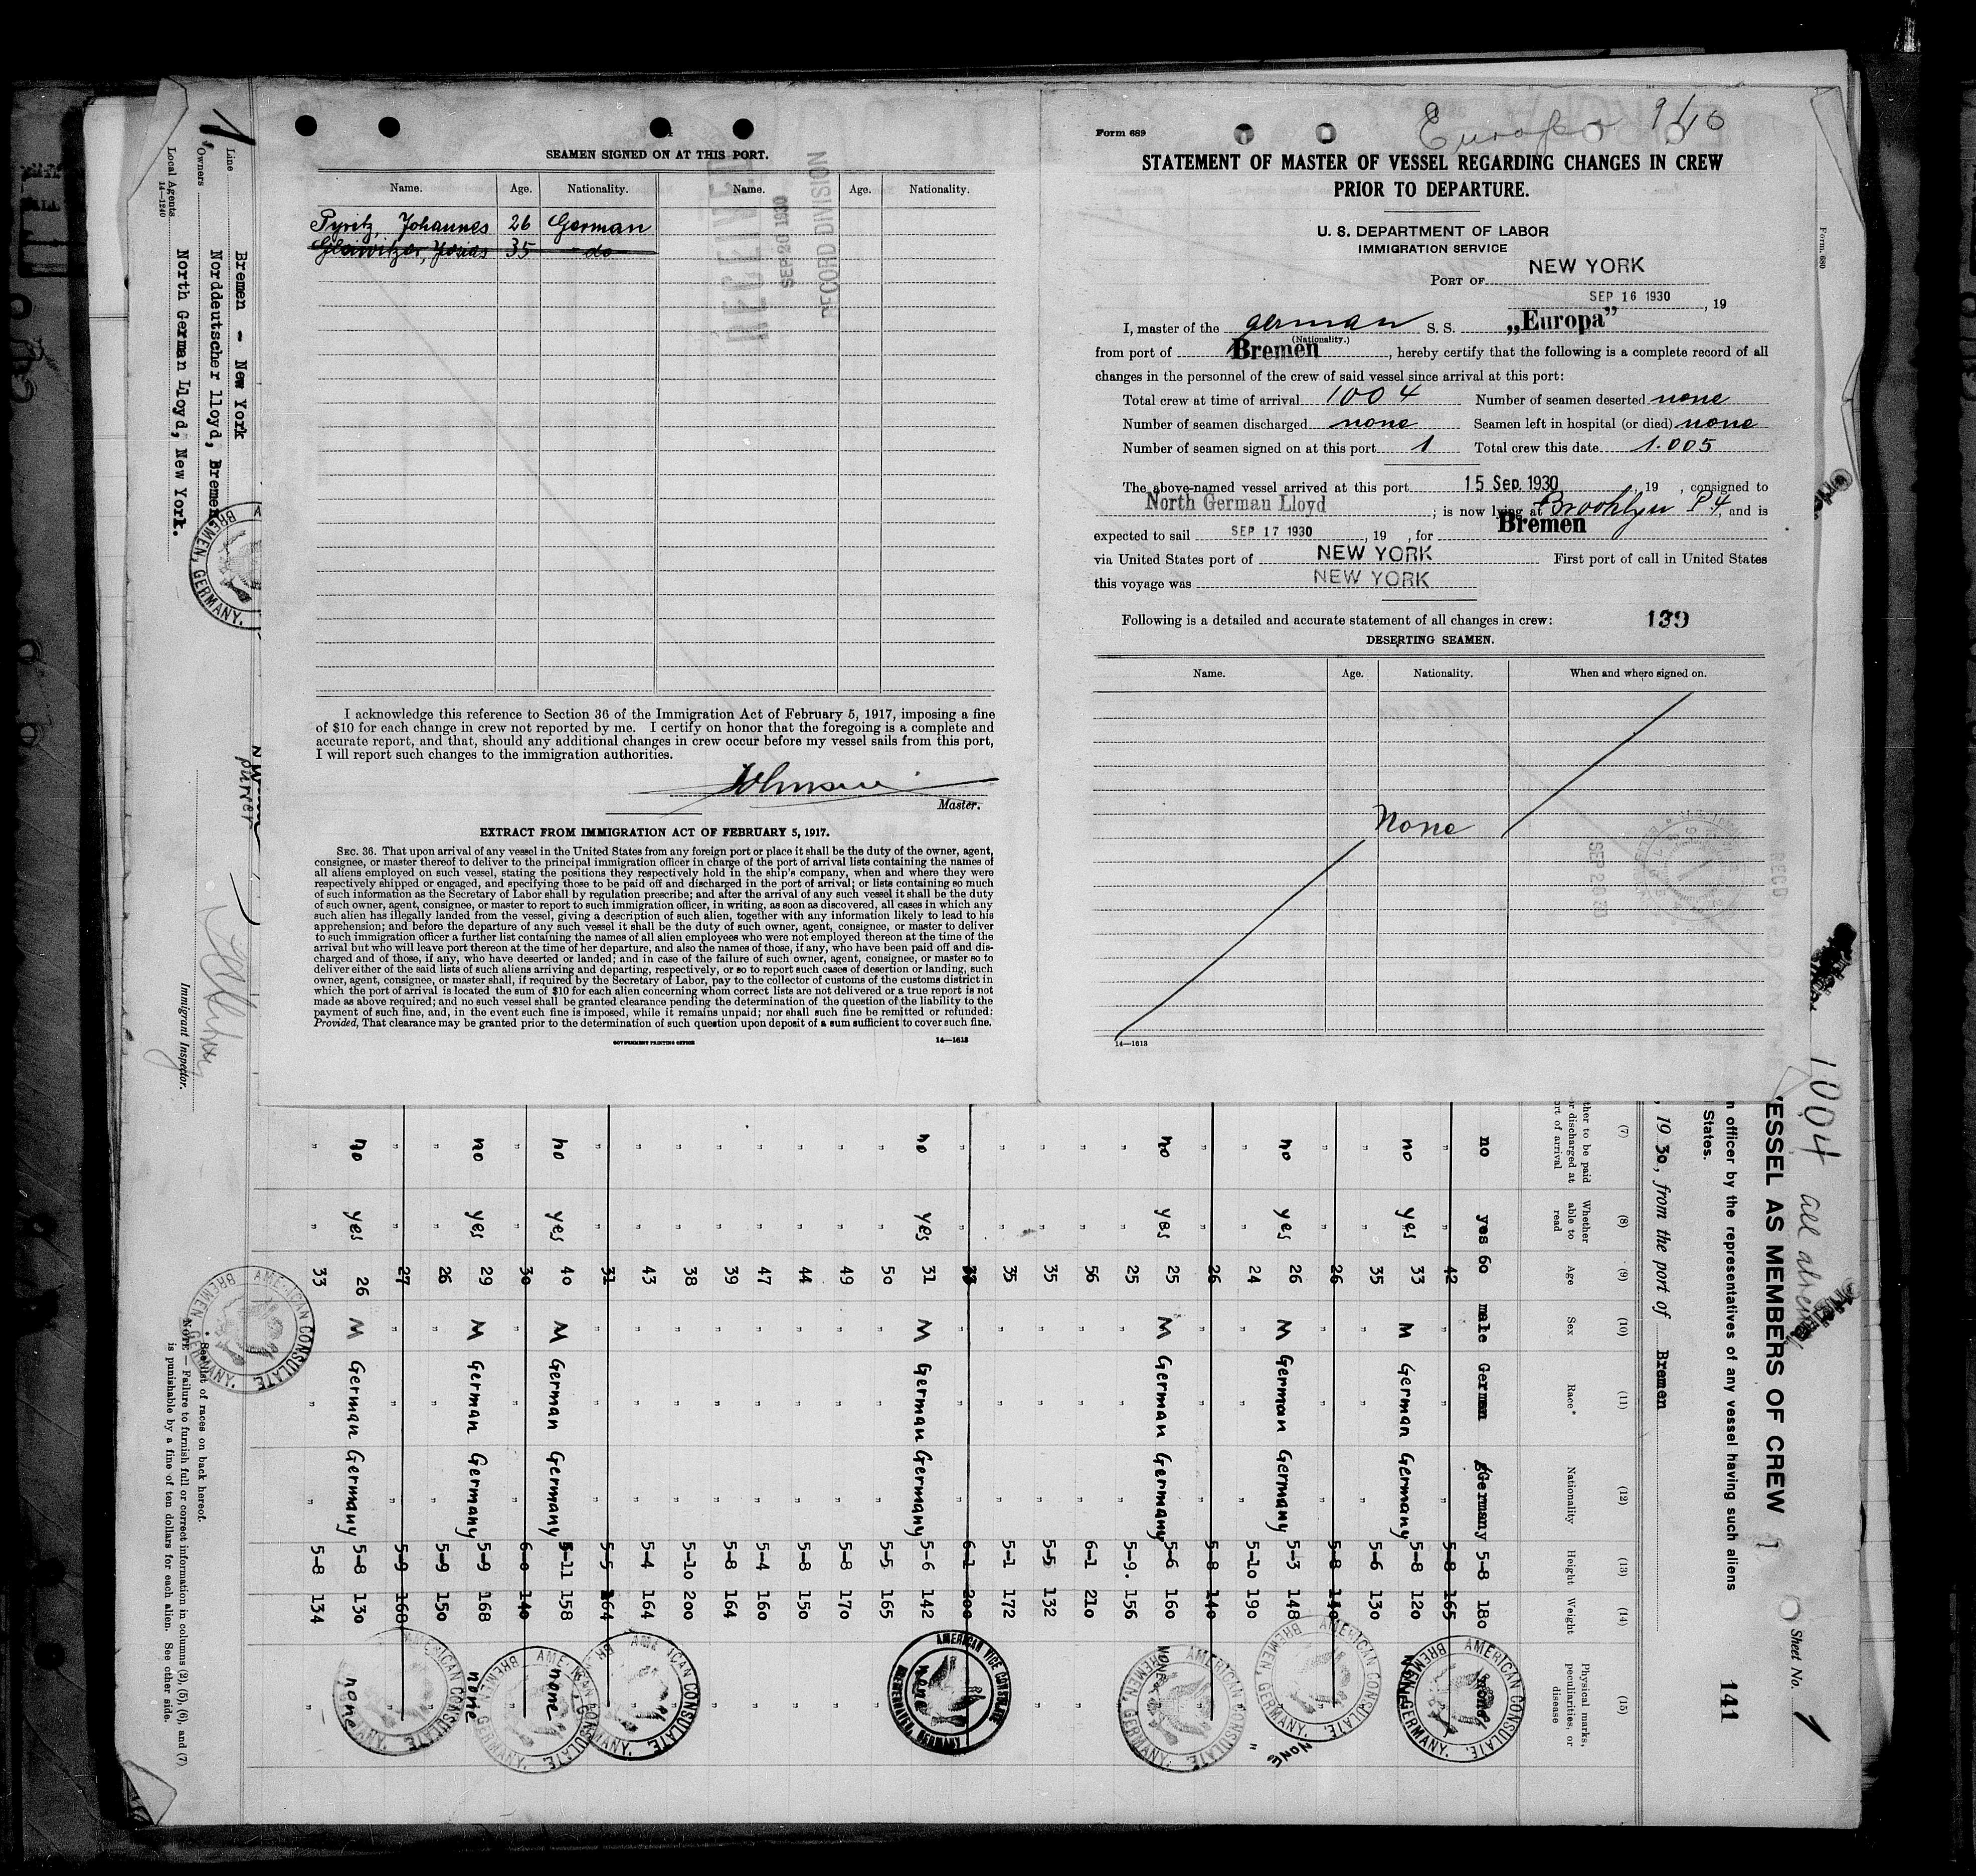 SEAMEN SIGNED ON AT THIS PORT.
Name. Age. Nationality. Name. Age. Nationality.
Pyritz, Johannes 26 German
Gleiwitzer, Josias 35 do
RECEIVED
SEP 20 1930
RECORD DIVISION
I acknowledge this reference to Section 36 of the Immigration Act of February 5, 1917, imposing a fine
of $10 for each change in crew not reported by me. I certify on honor that the foregoing is a complete and
accurate report, and that, should any additional changes in crew occur before my vessel sails from this port,
I will report such changes to the immigration authorities.
Master.
EXTRACT FROM IMMIGRATION ACT OF FEBRUARY 5, 1917.
SEC. 36. That upon arrival of any vessel in the United States from any foreign port or place it shall be the duty of the owner, agent,
consignee, or master thereof to deliver to the principal immigration officer in charge of the port of arrival lists containing the names of
all aliens employed on such vessel, stating the positions they respectively hold in the ship's company, when and where they were
respectively shipped or engaged, and specifying those to be paid off and discharged in the port of arrival; or lists containing so much
of such information as the Secretary of Labor shall by regulation prescribe; and after the arrival of any such vessel it shall be the duty
of such owner, agent, consignee, or master to report to such immigration officer, in writing, as soon as discovered, all cases in which any
such alien has illegally landed from the vessel, giving a description of such alien, together with any information likely to lead to his
apprehension; and before the departure of any such vessel it shall be the duty of such owner, agent, consignee, or master to deliver
to such immigration officer a further list containing the names of all alien employees who were not employed thereon at the time of the
arrival but who will leave port thereon at the time of her departure, and also the names of those, if any, who have been paid off and dis-
charged and of those, if any, who have deserted or landed; and in case of the failure of such owner, agent, consignee, or master so to
deliver either of the said lists of such aliens arriving and departing, respectively, or so to report such cases of desertion or landing, such
owner, agent, consignee, or master shall, if required by the Secretary of Labor, pay to the collector of customs of the customs district in
which the port of arrival is located the sum of $10 for each alien concerning whom correct lists are not delivered or a true report is not
made as above required; and no such vessel shall be granted clearance pending the determination of the question of the liability to the
payment of such fine, and, in the event such fine is imposed, while it remains unpaid; nor shall such fine be remitted or refunded:
Provided, That clearance may be granted prior to the determination of such question upon deposit of a sum sufficient to cover such fine.
GOVERNMENT PRINTING OFFICE 14—1613
Europa 940
Form 689
STATEMENT OF MASTER OF VESSEL REGARDING CHANGES IN CREW
PRIOR TO DEPARTURE.
U. S. DEPARTMENT OF LABOR
IMMIGRATION SERVICE
PORT OF NEW YORK
SEP 16 1930, 19
I, master of the german S. S. „Europa"
(Nationality.)
from port of Bremen, hereby certify that the following is a complete record of all
changes in the personnel of the crew of said vessel since arrival at this port:
Total crew at time of arrival 1004 Number of seamen deserted none
Number of seamen discharged none Seamen left in hospital (or died) none
Number of seamen signed on at this port 1 Total crew this date 1.005
The above-named vessel arrived at this port 15 Sep. 1930, 19 , consigned to
North German Lloyd; is now lying at Brooklyn P 4, and is
expected to sail SEP 17 1930, 19 , for Bremen
via United States port of NEW YORK First port of call in United States
this voyage was NEW YORK
Following is a detailed and accurate statement of all changes in crew: 139
DESERTING SEAMEN.
Name. Age. Nationality. When and where signed on.
None
14—1613
Line Bremen - New York
Owners Norddeutscher Lloyd, Bremen
Local Agents North German Lloyd, New York.
14—1240
Immigrant Inspector.
Form 680
1004
Sheet No. 1
141
ESSEL AS MEMBERS OF CREW
n officer by the representatives of any vessel having such aliens
States.
, 1930, from the port of Bremen
(7) (8) (9) (10) (11) (12) (13) (14) (15)
ther to be paid
r discharged at
rt of arrival
Whether
able to
read
Age Sex Race* Nationality Height Weight
Physical marks,
peculiarities, or
disease
no yes 60 male German Germany 5-8 180 none
" " 42 " " " 5-8 165
no yes 33 M German Germany 5-8 120 none
" " 35 " " " 5-6 130
" " 26 " " " 5-8 140
no yes 26 M German Germany 5-3 148 none
" " 24 " " " 5-10 190 "
" " 26 " " " 5-8 140
no yes 25 M German Germany 5-6 160 none
" " 25 " " " 5-9. 156
" " 56 " " " 6-1 210 "
" " 35 " " " 5-5 132 "
" " 35 " " " 5-1 172
" " 33 " " " 6-1 200
no yes 31 M German Germany 5-6 142 none
" " 50 " " " 5-5 165 "
" " 49 " " " 5-8 170 "
" " 44 " " " 5-8 150 "
" " 47 " " " 5-4 160 "
" " 39 " " " 5-8 164 "
" " 38 " " " 5-10 200 "
" " 43 " " " 5-4 164 "
" " 31 " " " 5-5 164
no yes 40 M German Germany 5-11 158 none
" " 30 " " " 6-0 140
no yes 29 M German Germany 5-9 168 none
" " 26 " " " 5-9 150
" " 27 " " " 5-9 160
no yes 26 M German Germany 5-8 130 none
" " 33 " " " 5-8 134 "
AMERICAN CONSULATE BREMEN, GERMANY.
AMERICAN VICE CONSULATE BREMERHAVEN, GERMANY
* See list of races on back hereof.
NOTE.—Failure to furnish full or correct information in columns (2), (5), (6), and (7)
is punishable by a fine of ten dollars for each alien. See other side.